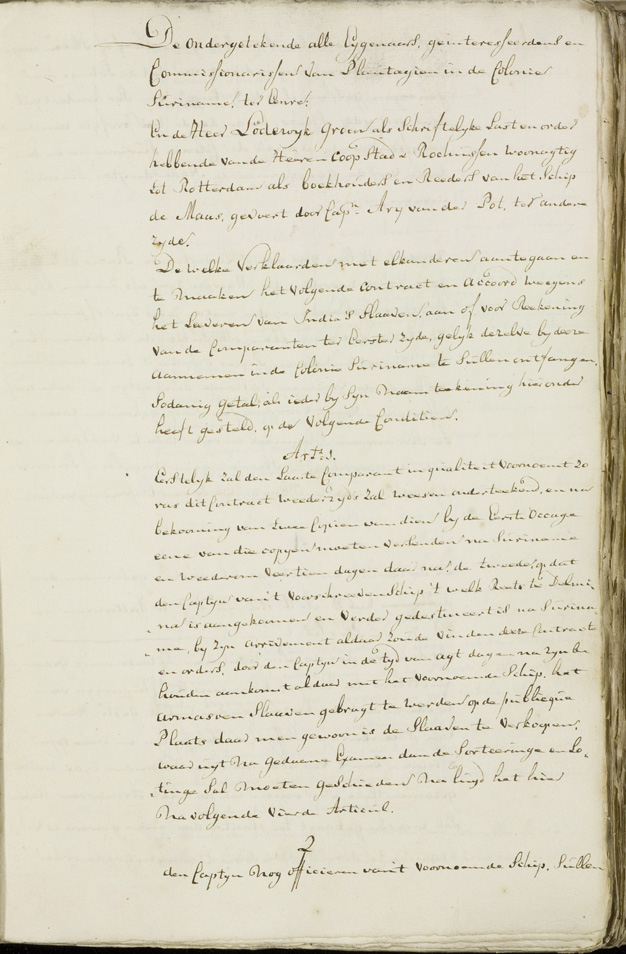 De ondergetekende alle Eygenaars, geinteresseerdens en
Commissionarissen van Plantagien in de Colonie
Suriname, ter Eenre,
En de Heer Lodewyk Groen als Schriftelyke Last en order
hebbende van de Heeren Coopstad & Rochussen woonagtig
tot Rotterdam als boekhouders en Reeders van het Schip
de Maas, gevoert door Capn. Ary van der Pol, ter andere
zyde,
De welke Verklaarden met elkanderen aantegaan en
te Maaken het volgende Contract en Accoord weegens
het Leveren van India's Slaaven, aan of voor Reekening
van de Comparanten ter Eerster zyde, gelyk dezelve by deeze
Aannemen in de Colonie Suriname te Sullen ontfangen
Sodanig getal, als ieder by Syn Naam teekening hier onder
heeft gesteld, op de Volgende Conditien.
Art: 1.
Eerstelyk zal den Laaste Comparant in qualiteit voornoemt zo
ras dit Contract weederzyds zal weesen onderteekend, en na
bekooming van twee Copien van dien by de Eerste Occagie
eene van die copyen moeten verzenden na Suriname
en weederom veertien dagen daar na, de tweede, op dat
den Captyn van't Voorschreeven Schip 't welk Reets te Delmi-
na is aangekomen en Verder gedestineert is na Surina-
me, by Zyn Arrivement aldaar zoude vinden deze Contracte
en orders, door den Captyn in de tyd van agt dagen na zyn be-
houden aankomst aldaar met het voornoemde Schip, het
Armasoen Slaaven gebragt te werden op de publicque
Plaats daar men gewoon is de Slaaven te Verkoopen,
waar uyt Na gedaane Examen dan de Sorteeringe en Lo-
tinge Sal Moeten Geschieden Na luyd het hier
Na volgende Vierde Articul.
2
den Captyn Nog officieren van't voornoemde Schip, Sullen